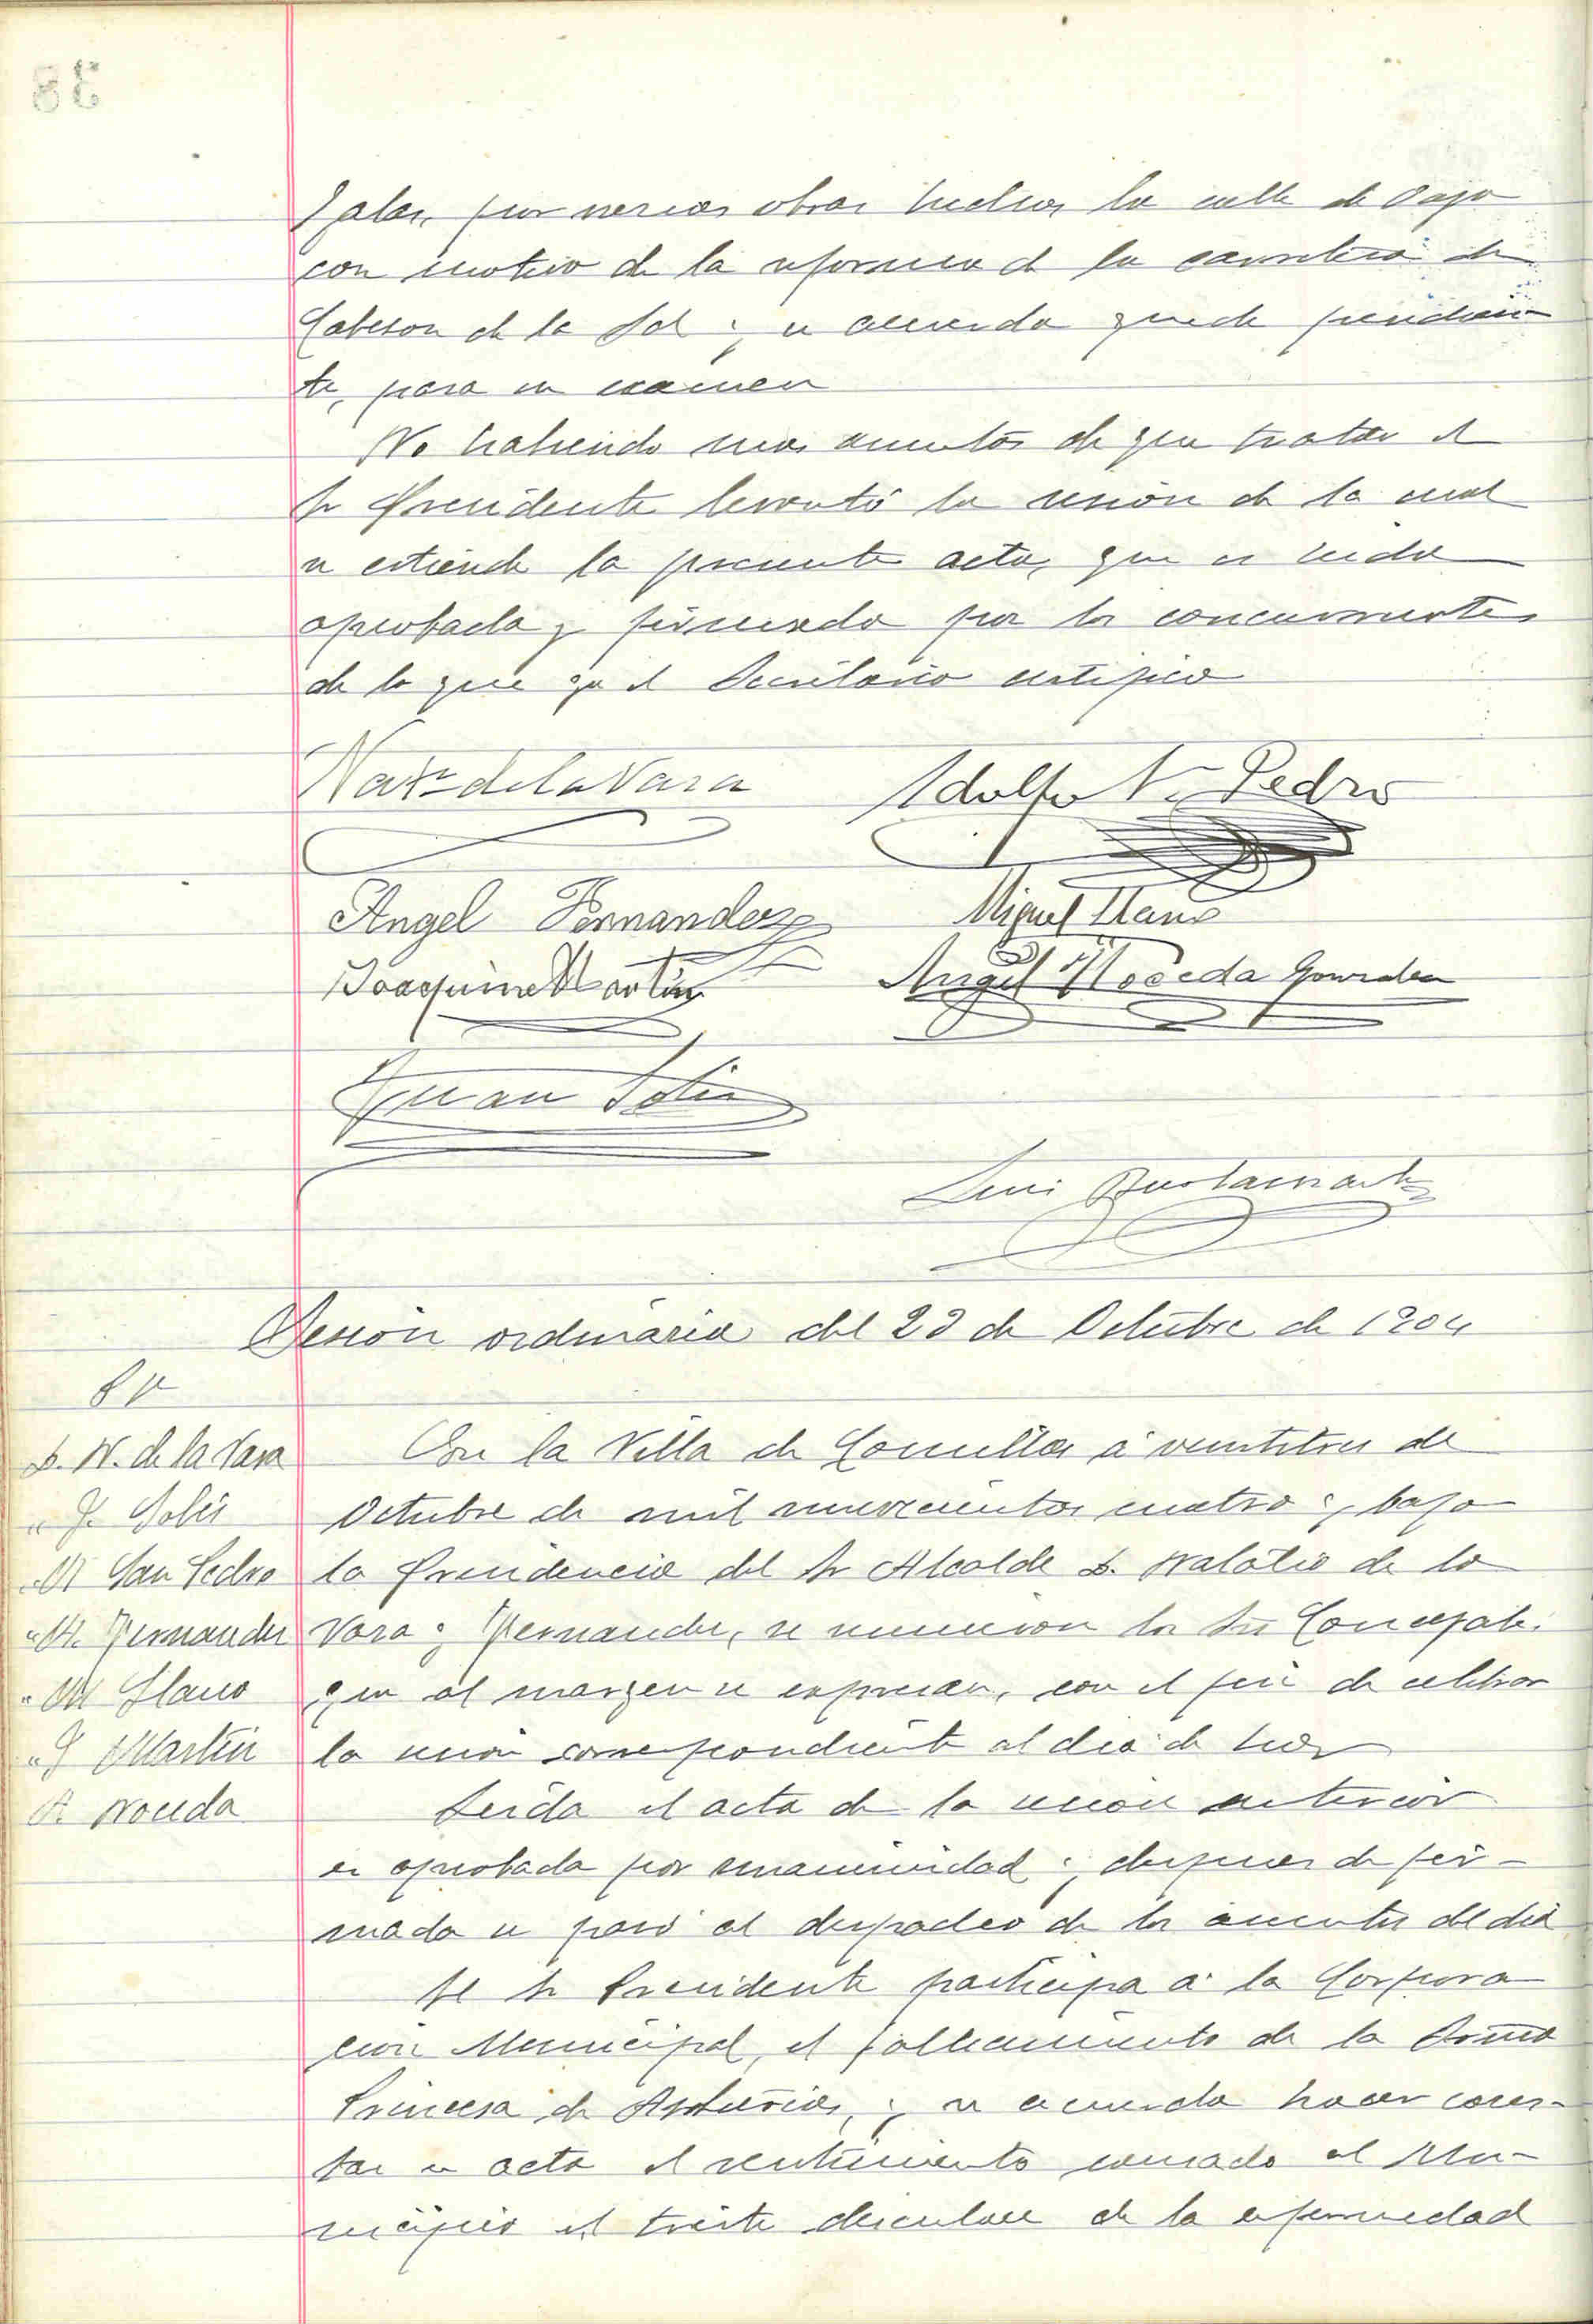 por varias obras hechas la calle de bajo
con motivo de la reforma de la carretera de
Cabezon de la Sal y se acuerda quede pendien
te, para su examen
No habiendo mas asuntos de que tratar el
Sr Presidente levantó la sesion de la cual
se estiende la presente acta, que es leida
aprobada y firmada por los concurrentes
de lo que yo el Secretario certifico
Nat° de la Vara Adolfo V. S. Pedro
Angel Fernandez Miguel Llano
Joaquin Martin Angel Noceda Gonzalez
Juan Solis
Luis Bustamante
Sesion ordinaria del 23 de Octubre de 1904
D. N. de la Vara
" J. Solis
" San Pedro
" A. Fernandez
" M Llano
" J Martin
A. Noceda
En la Villa de Comillas á veintitres de
Octubre de mil novecientos cuatro y bajo
la Presidencia del Sr Alcalde D. Natalio de la
Vara y Fernandez, se reunieron los Sres Concejales
que al margen se expresan, con el fin de celebrar
la sesion correspondiente al dia de hoy
Leida el acta de la sesion anterior
es aprobada por unanimidad y despues de fir-
mada se pasó al despacho de los asuntos del dia
El Sr Presidente participa á la Corpora
cion Municipal, el fallecimiento de la
Princesa de Asturias, y se acuerda hacer cons-
tar en acta el sentimiento causado al Mu-
nicipio el triste desenlace de la enfermedad